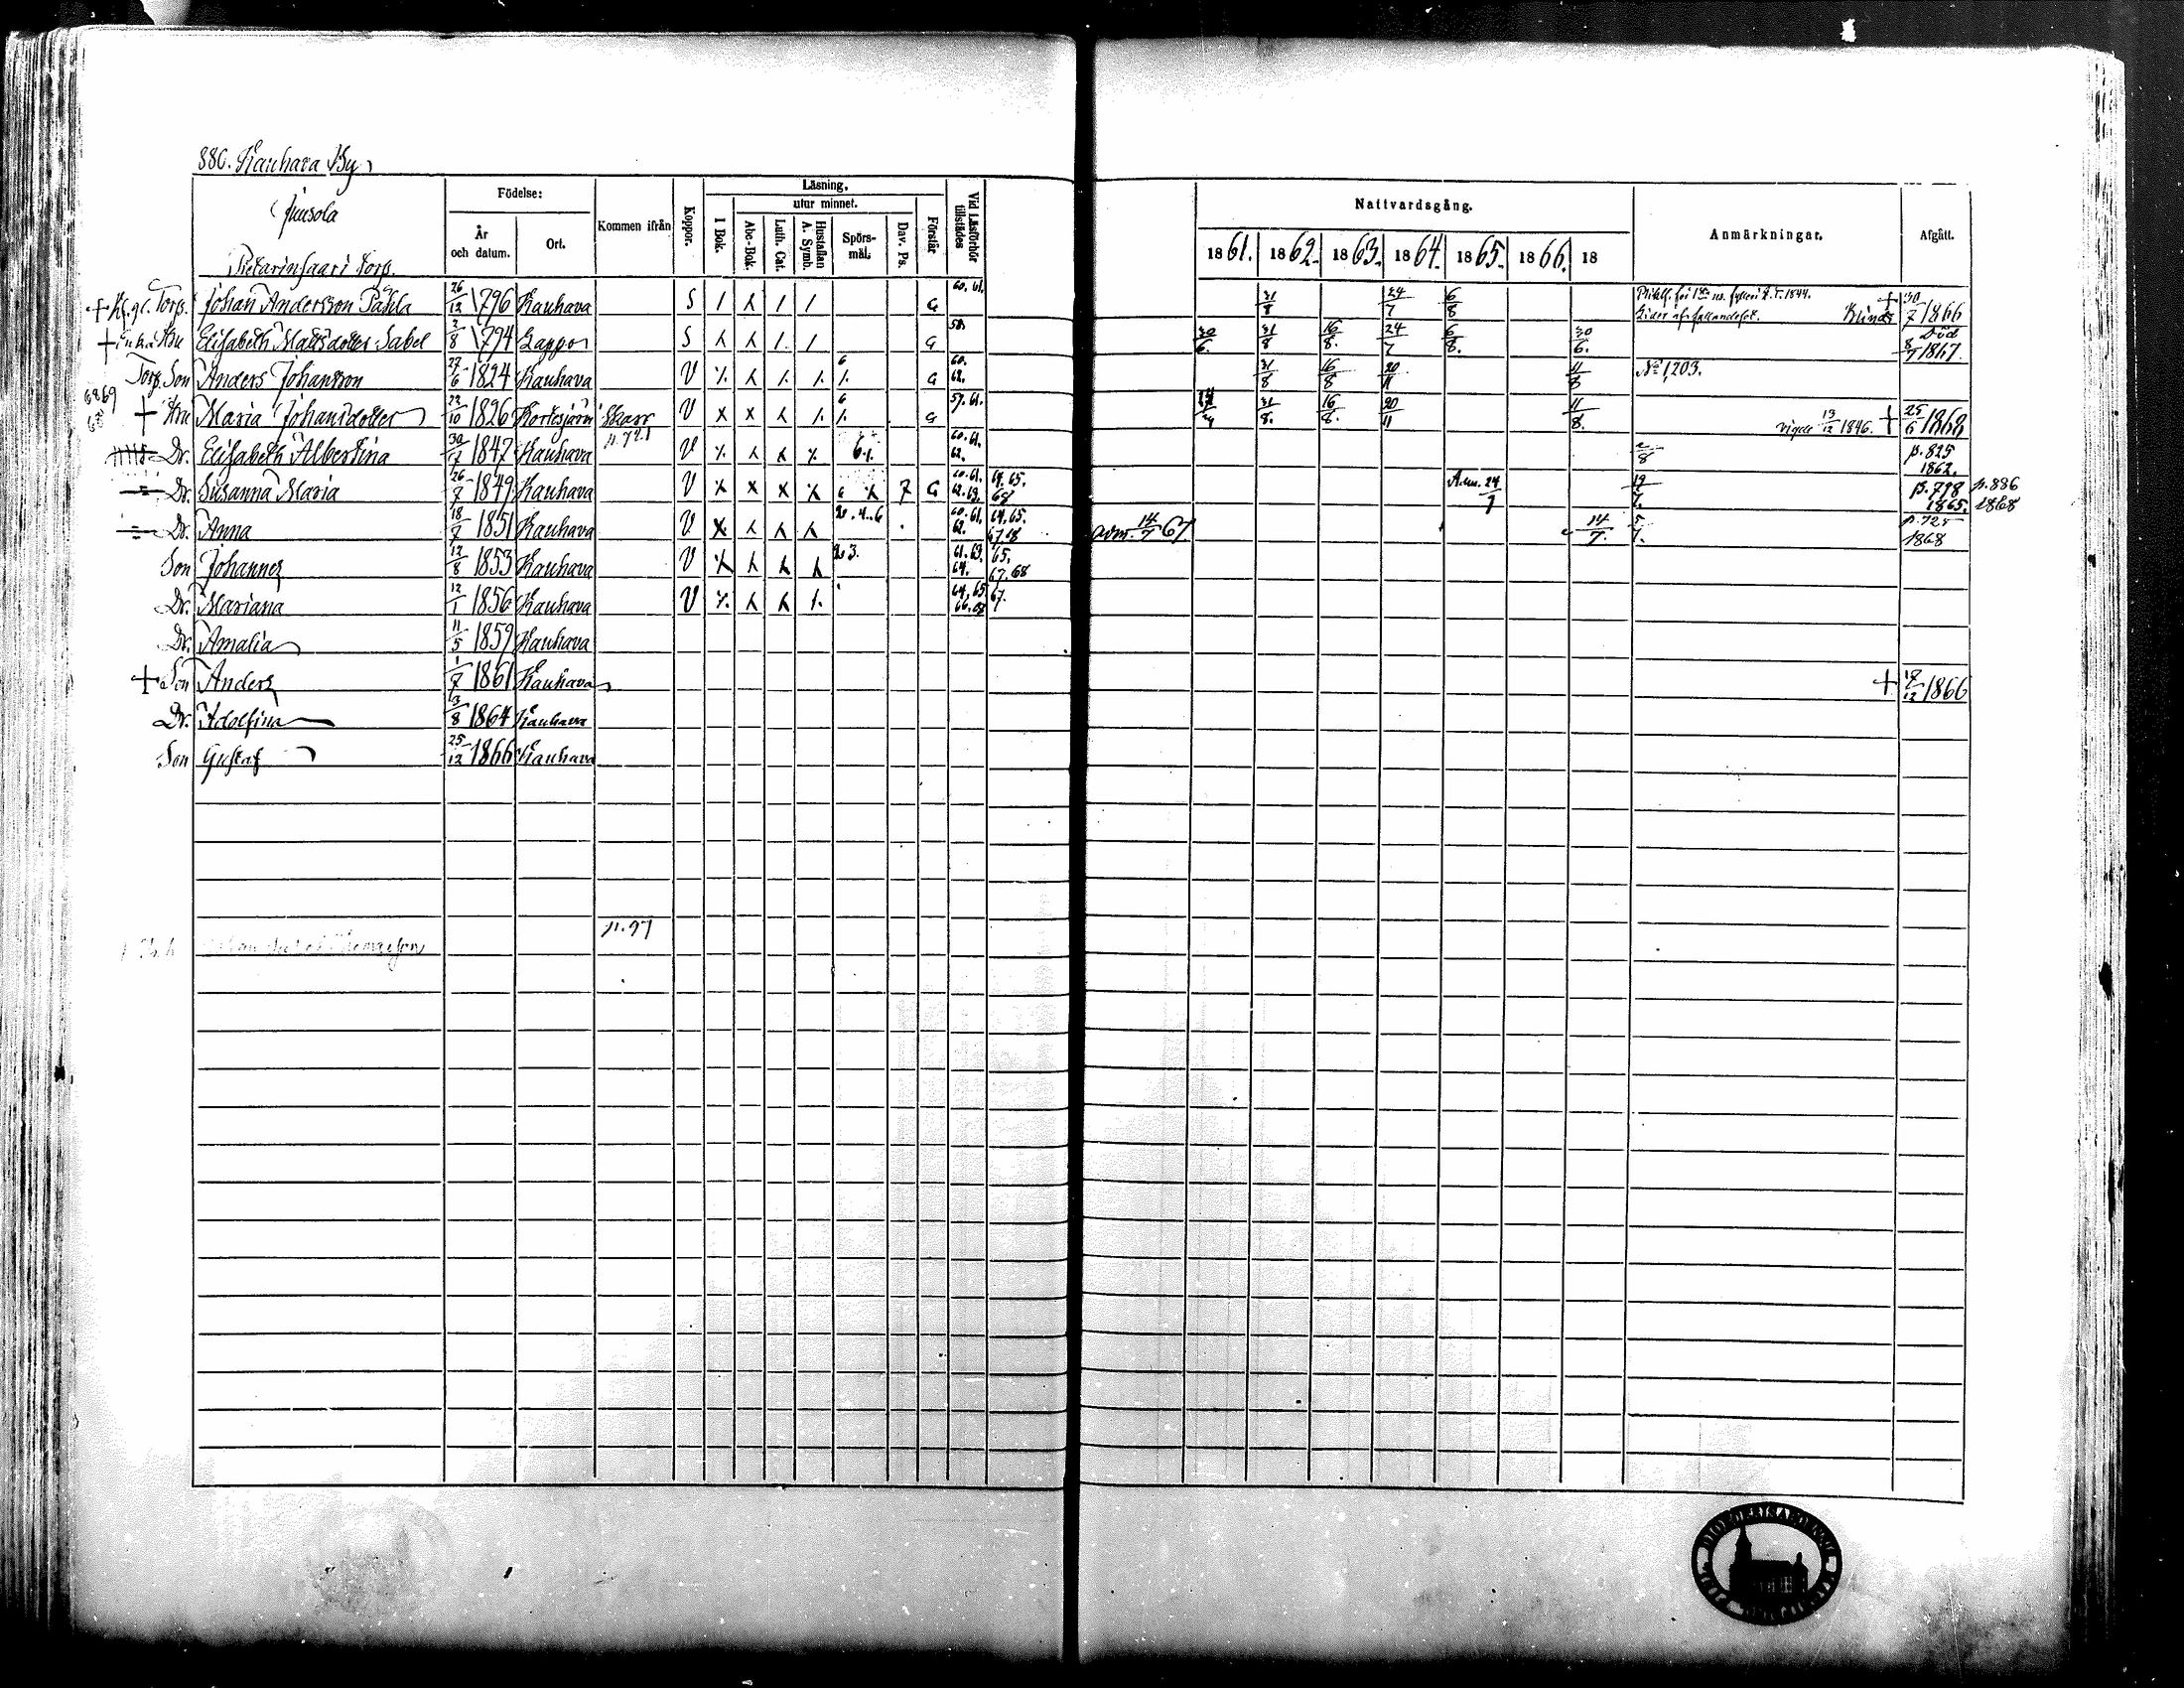 880. Kauhava By
Jussola
Pietarinsaari torp.
Födelse:
År och datum.
Ort.
Kommen ifrån
Koppor.
Läsning.
I Bok.
utur minnet.
Abc-Bok.
Luth. Cat.
Hustaflan A. Symb.
Spörs-mål.
Dav. Ps.
Förstår
Vid Läsförhör tillstädes
Nattvardsgång.
1861. 1862. 1863. 1864. 1865. 1866. 18
Anmärkningar.
Afgått.
+ Torp. Johan Andersson 26/12 1796 Kauhava S G 60. 61. 31/8 24/7 6/8 Blind + 30/7 1866
+ Elisabeth Mattsdotter Sabel 2/8 1794 Lappo S G 58. 30/6. 31/8 16/8. 24/7 6/8. 30/6. Död 8/7 1867.
Torp. Son Anders Johansson 27/6 1824 Kauhava V 6 G 60. 62. 31/8 16/8 20/11 11/8 No 1,203.
+ Hu Maria Johansdotter 22/10 1826 Kortesjärvi V x x 6 G 57. 61. 31/8. 16/8. 20/11 11/8. vigde 13/12 1846. + 25/6 1868
Dr. Elisabeth Albertina 1847 Kauhava V 60. 61. 62. 2/8 p. 825 1862.
Dr. Susanna Maria 26/7 1849 Kauhava V x x x x 7 G 60. 61. 64. 65. 68 24/7 p. 798 1865. p. 886 1868
Dr. Anna 18/7 1851 Kauhava V x 2. 4. 6 60. 61. 62. 64. 65. 67 68 adm. 14/7 67 14/7. p. 725 1868
Son Johannes 12/8 1853 Kauhava V 2 3. 61. 63. 64. 65. 67. 68
Dr. Mariana 12/1 1856 Kauhava V 64. 65. 66. 68 67.
Dr. Amalia 11/5 1859 Kauhava
+ Son Anders 1/7 1861 Kauhava + 12 1866
Dr. Adolfina 13/8 1864 Kauhava
Son Gustaf 25/12 1866 Kauhava
p. 97